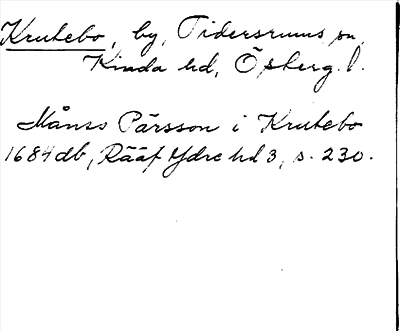 Krukebo, by, Tidersrums sn,
Kinda hd, Österg. l.
Måns Pärsson i Krukebo
1684 db, Rääf Ydre hd 3, s. 230.